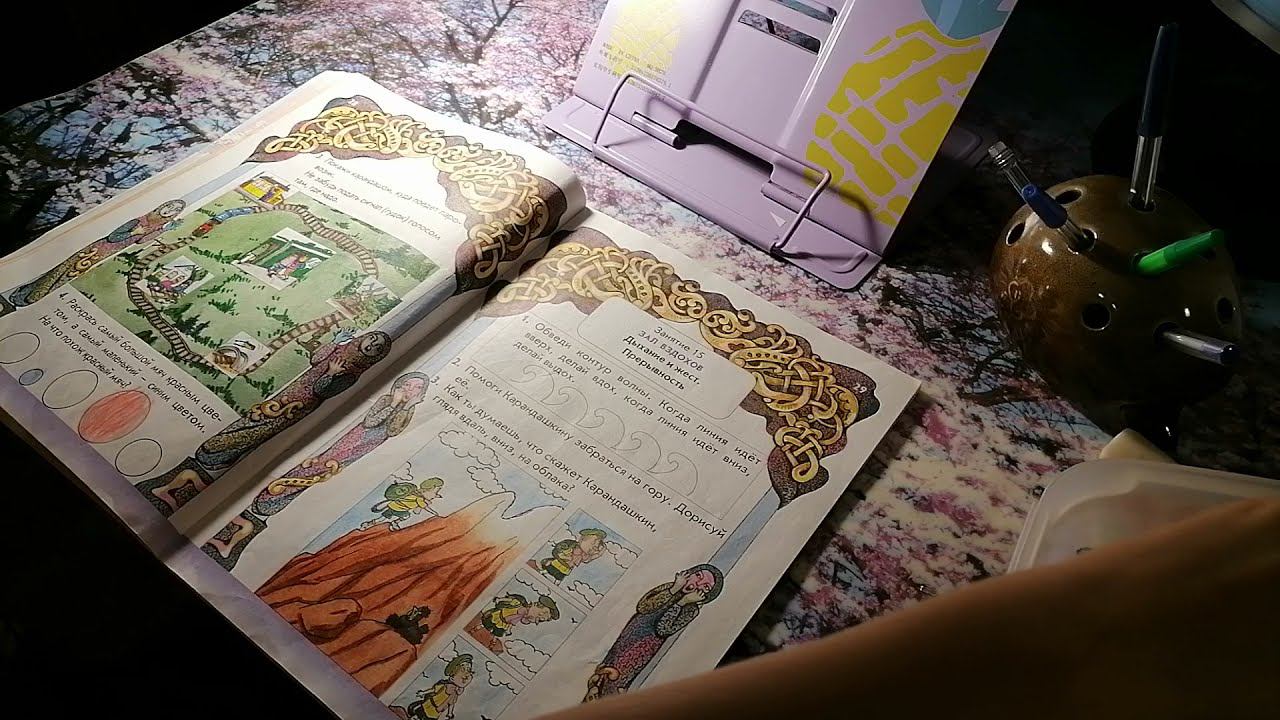 3. Покажи карандашом, куда поедет паро-
воз.
Не забудь подать сигнал (гудок) голосом
там, где надо.
4. Раскрась самый большой мяч красным цве-
том, а самый маленький - синим цветом.
На что похож красный мяч?
29
Занятие 15
ЗАЛ ВЗДОХОВ
Дыхание и жест.
Прерывность
1. Обведи контур волны. Когда линия идёт
вверх, делай вдох, когда линия идёт вниз,
делай выдох.
2. Помоги Карандашкину забраться на гору. Дорисуй
её.
3. Как ты думаешь, что скажет Карандашкин,
глядя вдаль, вниз, на облака?